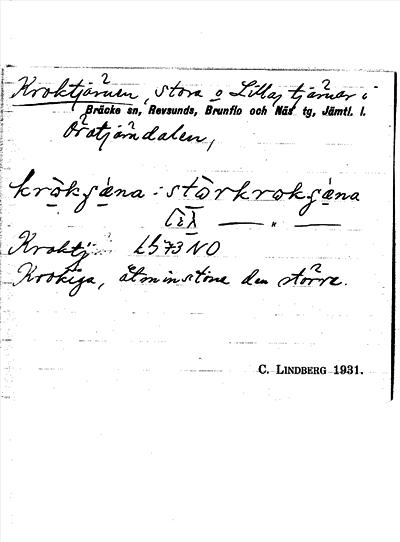 Kroktjärnen, stora o Lilla, tjärnar i
Bräcke sn, Revsunds, Brunflo och Näs tg, Jämtl. l.
Öratjärndalen,
kròkɟæna - stòrkrokɟæna
lìλ — " —
Kroktj LS 73 NO
Krokiga, åtminstone den större.
C. LINDBERG 1931.